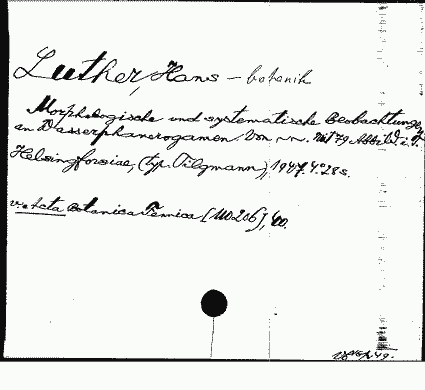 Luther, Hans – botanik
Morphologische und systematische Beobachtungen
an Wasserphanerogamen. Von ~~. Mit 79 Abbild. i. T.
Helsingforsiae, (typ. Tilgmann), 1947. 4:o 28 s.
v. Acta Botanica Fennica [110206], 40.